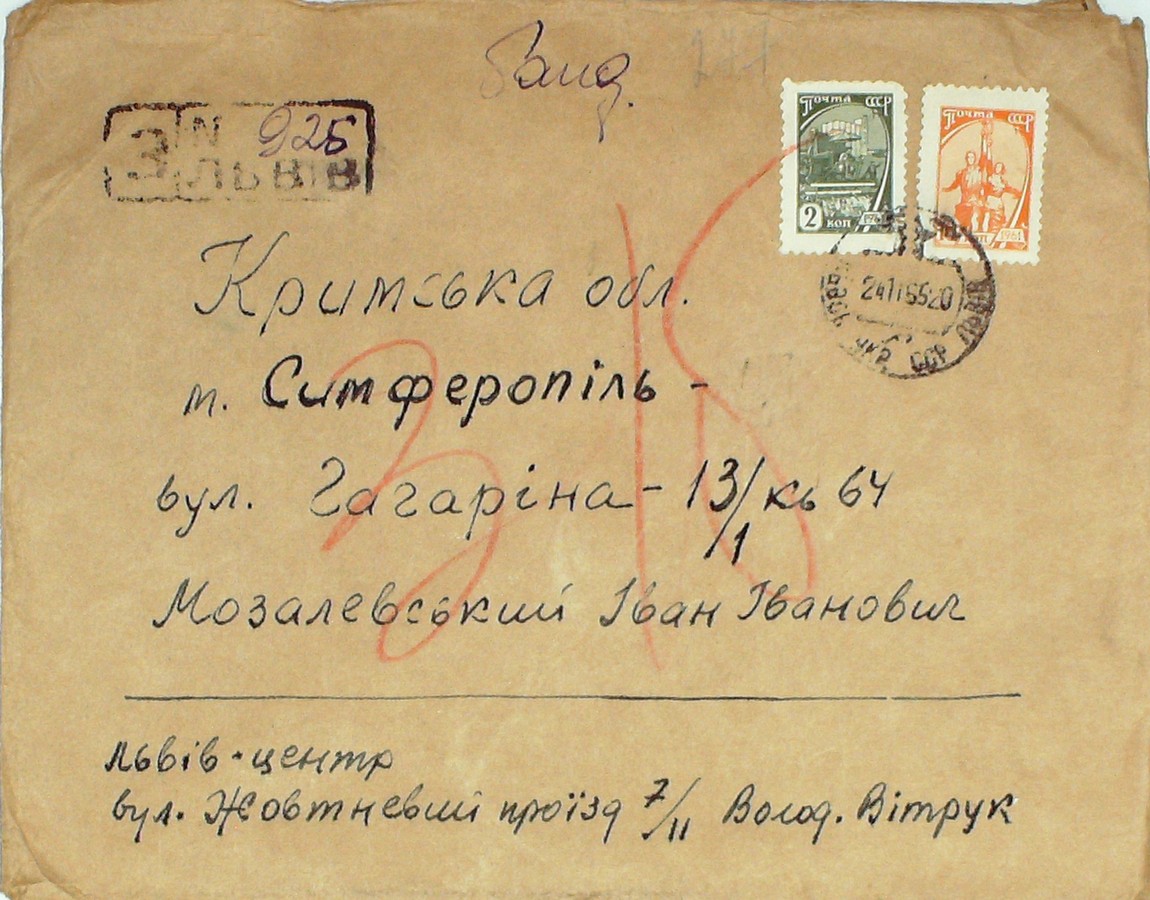 Банд.
З N 925
ЛЬВІВ
Почта СССР
2 коп 1961
Почта СССР
1961
УКР. ССР ЛЬВІВ
Кримська обл.
м. Симферопіль -
вул. Гагаріна - 13/1 кв 64
Мозалевський Іван Іванович
Львів-центр
вул. Жовтневий проїзд 7/11 Волод. Вітрук
ЗК